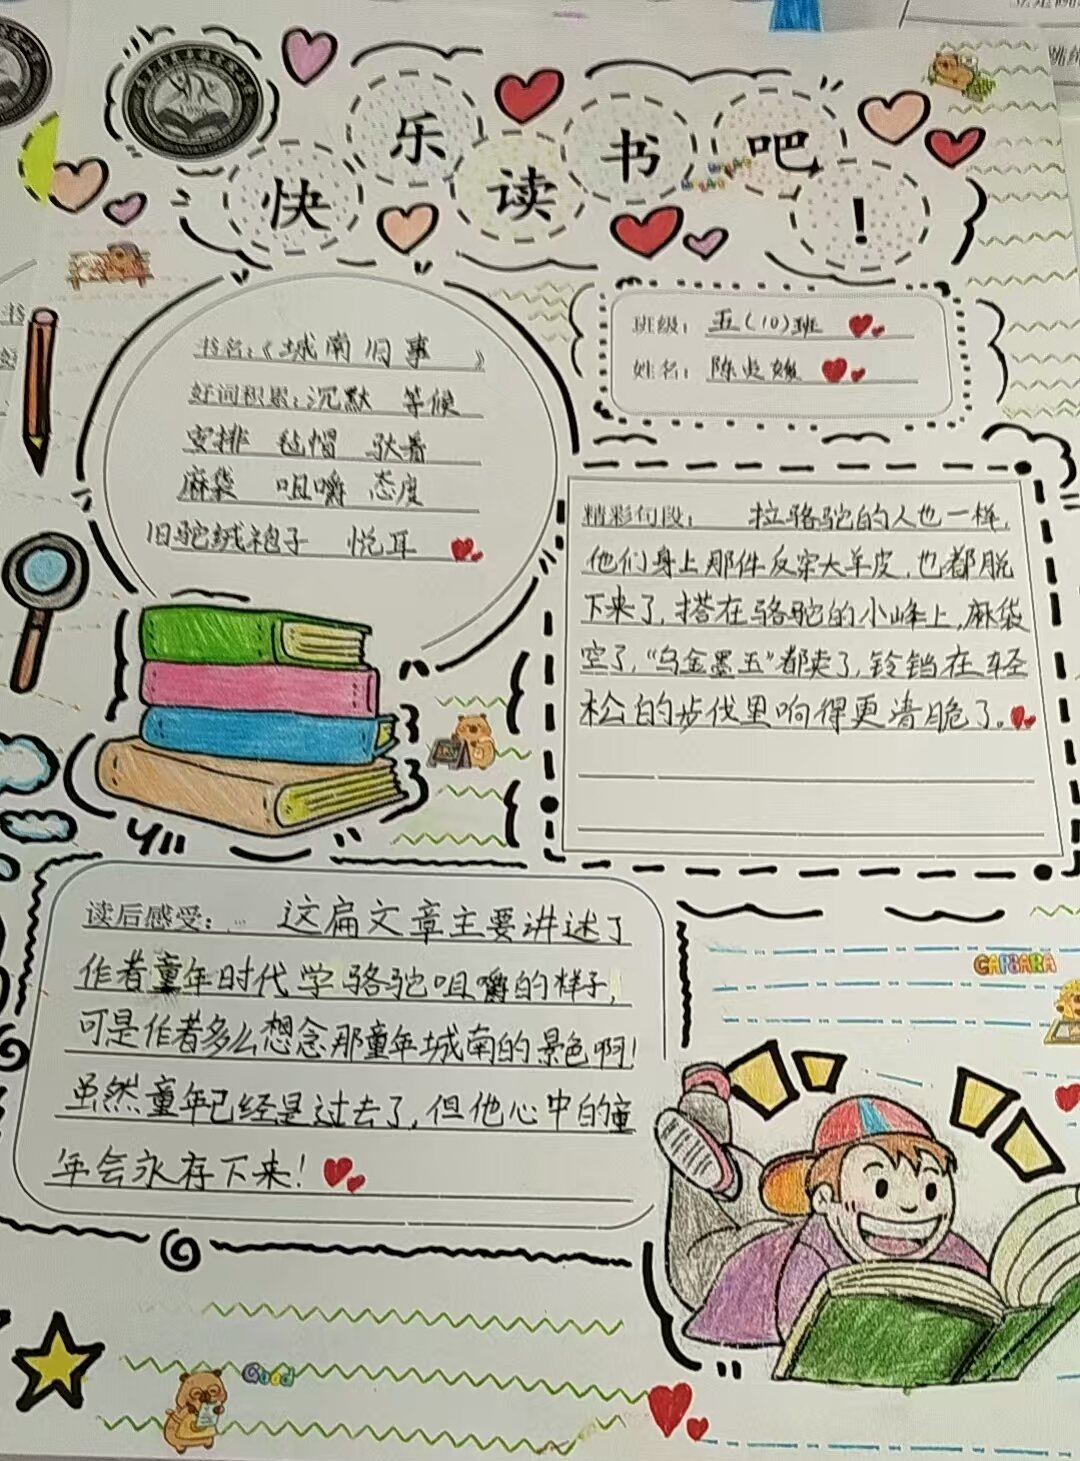 快乐读书吧！
班级：五（10）班
姓名：陈
书名：《城南旧事》
好词积累：沉默 等候
安排 毡帽 驮着
麻袋 咀嚼 态度
旧驼绒袍子 悦耳
精彩句段： 拉骆驼的人也一样，
他们身上那件反穿大羊皮，也都脱
下来了，搭在骆驼的小峰上，麻袋
空了，“乌金墨玉”都卖了，铃铛在轻
松的步伐里响得更清脆了。
读后感受： 这扁文章主要讲述了
作者童年时代学骆驼咀嚼的样子，
可是作者多么想念那童年城南的景色啊！
虽然童年已经是过去了，但他心中的童
年会永存下来！
CAPBARA
Good